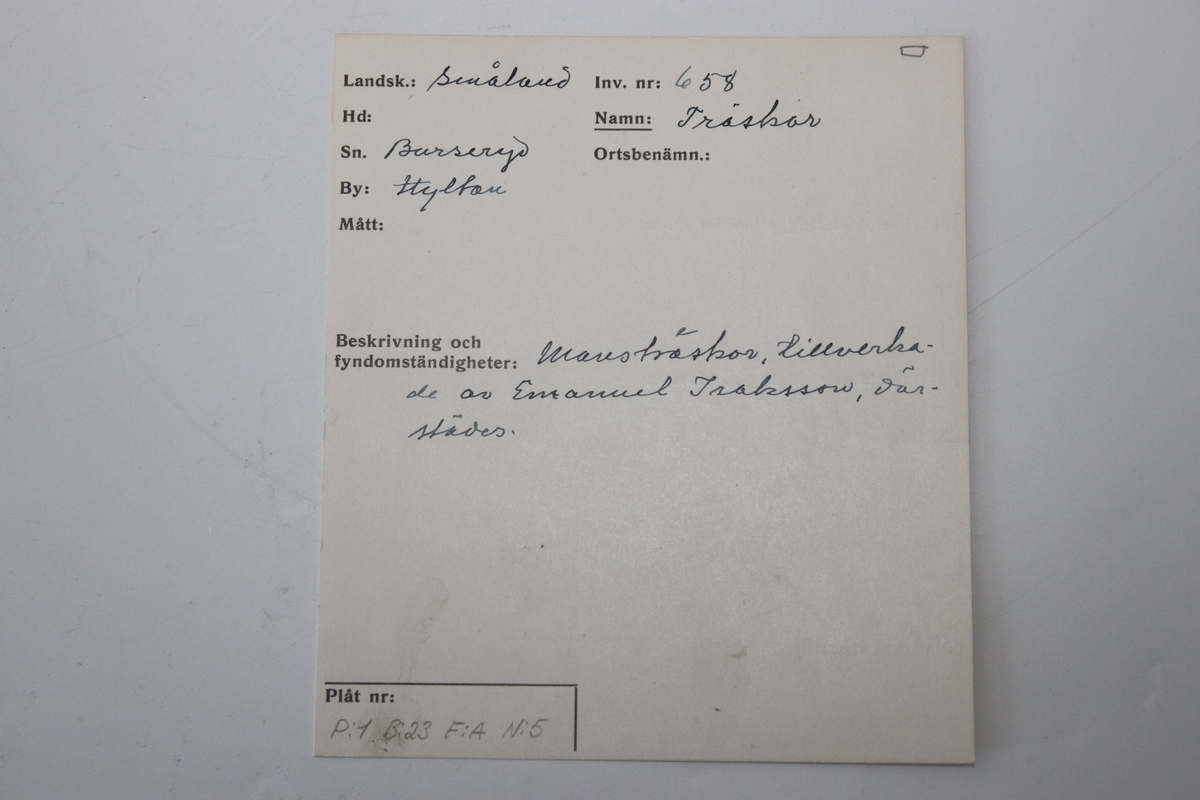 Landsk.: Småland Inv. nr: 658
Hd: Namn: Träskor
Sn. Burseryd Ortsbenämn.:
By: Hyltan
Mått:
Beskrivning och
fyndomständigheter: Mansträskor, tillverka-
de av Emanuel Isaksson, där-
städes.
Plåt nr:
P:1 B:23 F:A N:5